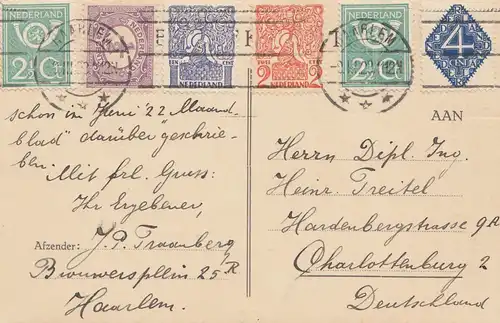 NEDERLAND
2½ C
NEDERLAND
NEDERLAND
NEDERLAND
2½ C
4
HAARLEM
schon im Juni '22 Maand-
blad" darüber geschrie-
ben.
Mit frl. Gruss:
Ihr Ergebener,
Afzender: J. P. Traanberg
Brouwersplein 25R
Haarlem.
AAN
Herrn Dipl. Ing.
Heinr. Treitel
Hardenbergstrasse 9a
Charlottenburg 2
Deutschland